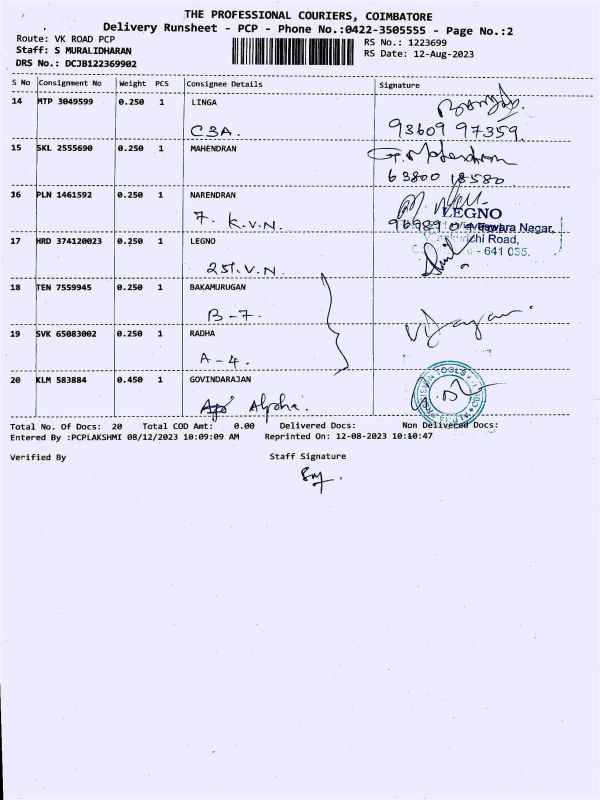 THE PROFESSIONAL COURIERS, COIMBATORE
Delivery Runsheet - PCP - Phone No.:0422-3505555 - Page No.:2
Route: VK ROAD PCP
RS No.: 1223699
Staff: S MURALIDHARAN
RS Date: 12-Aug-2023
DRS No.: DCJB122369902
S No Consignment No Weight PCS Consignee Details Signature
14 MTP 3049599 0.250 1 LINGA
CSA. 93609 97359.
15 SKL 2555690 0.250 1 MAHENDRAN G. Mahendran
63800 18580
16 PLN 1461592 0.250 1 NARENDRAN
7. K.V.N.
LEGNO
17 HRD 374120023 0.250 1 LEGNO
Road,
- 641 035.
251. V.N.
18 TEN 7559945 0.250 1 BAKAMURUGAN
B-7.
19 SVK 65083002 0.250 1 RADHA
A-4.
20 KLM 583884 0.450 1 GOVINDARAJAN
Alpha.
Total No. Of Docs: 20 Total COD Amt: 0.00 Delivered Docs: Non Delivered Docs:
Entered By :PCPLAKSHMI 08/12/2023 10:09:09 AM Reprinted On: 12-08-2023 10:10:47
Verified By Staff Signature